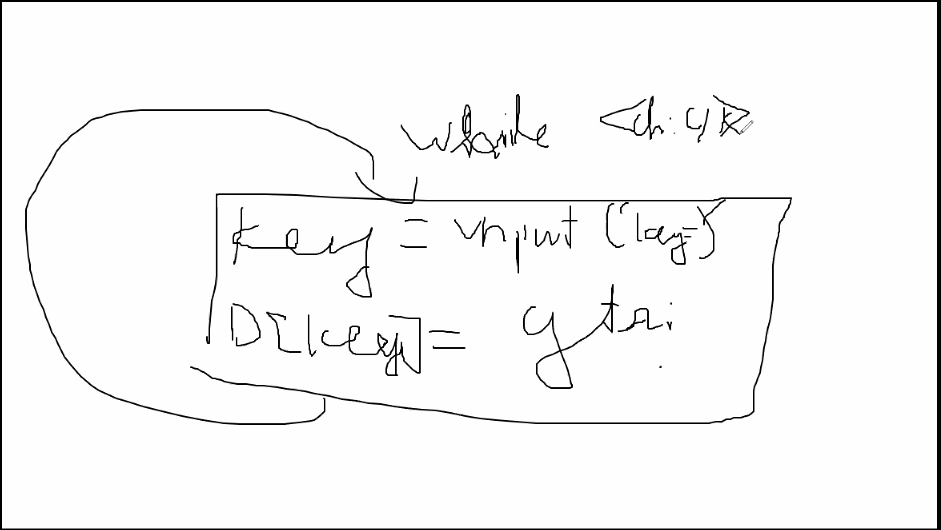 while
key = input (key)
D[key] = gtri